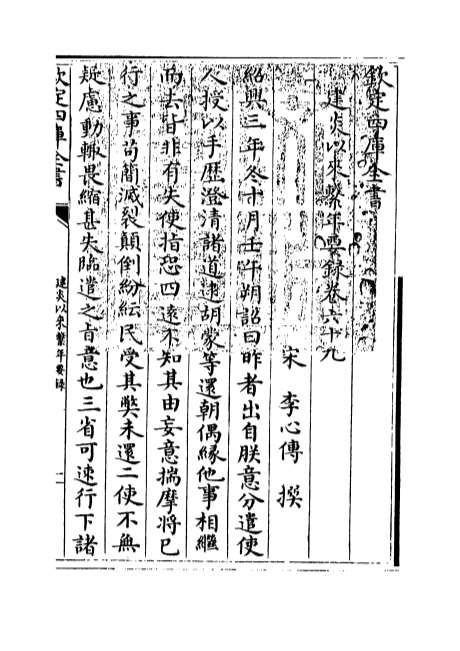 欽定四庫全書
建炎以來繫年要録卷六十九
宋　李心傳　撰
紹興三年冬十月壬午朔詔曰昨者出自朕意分遣使
人授以手歴澄清諸道逮胡蒙等還朝偶縁他事相繼
而去皆非有失使指恐四逺不知其由妄意揣摩將已
行之事茍簡滅裂顛倒紛紜民受其弊未還二使不無
疑慮動輙畏縮甚失臨遣之旨意也三省可速行下諸
欽定四庫全書
建炎以來繫年要録